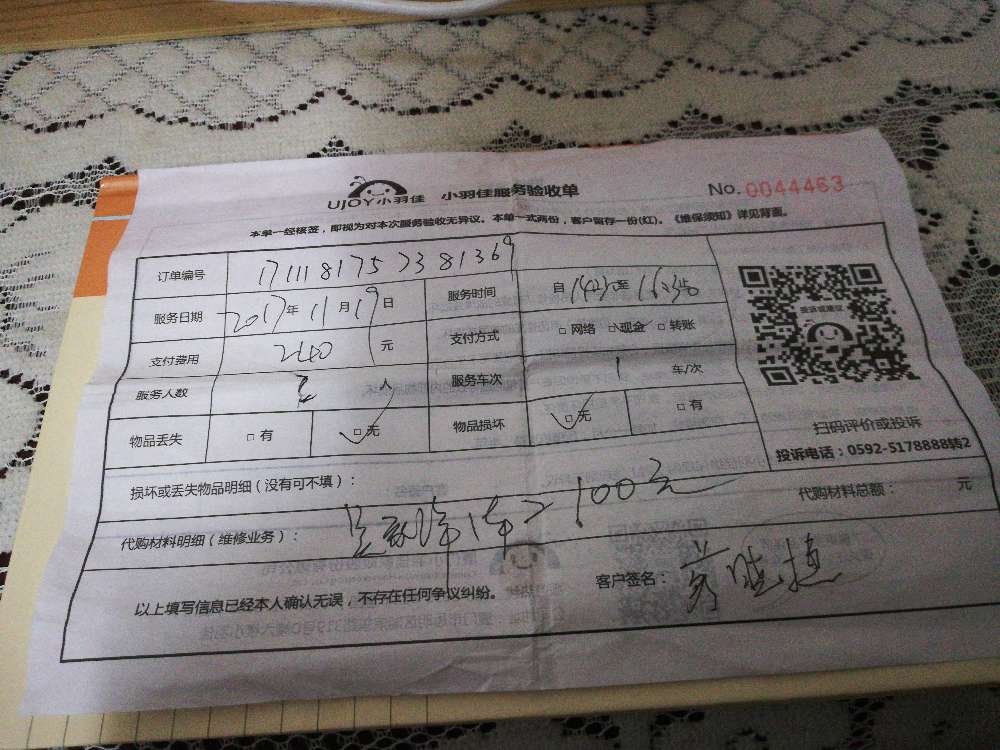 UJOY小羽佳 小羽佳服务验收单 No. 0044463
本单一经核签，即视为对本次服务验收无异议。本单一式两份，客户留存一份(红)。《维保须知》详见背面。
订单编号 171118175738 1369
服务日期 2017年11月19日 服务时间 自14:23至16:36
支付费用 元 支付方式 □网络 □现金 □转账
服务人数 2人 服务车次 1 车/次
物品丢失 □有 □无 物品损坏 □无 □有
投诉或建议
扫码评价或投诉
投诉电话：0592-5178888转2
损坏或丢失物品明细（没有可不填）：
代购材料明细（维修业务）： 100元 代购材料总额： 元
以上填写信息已经本人确认无误，不存在任何争议纠纷。 客户签名：